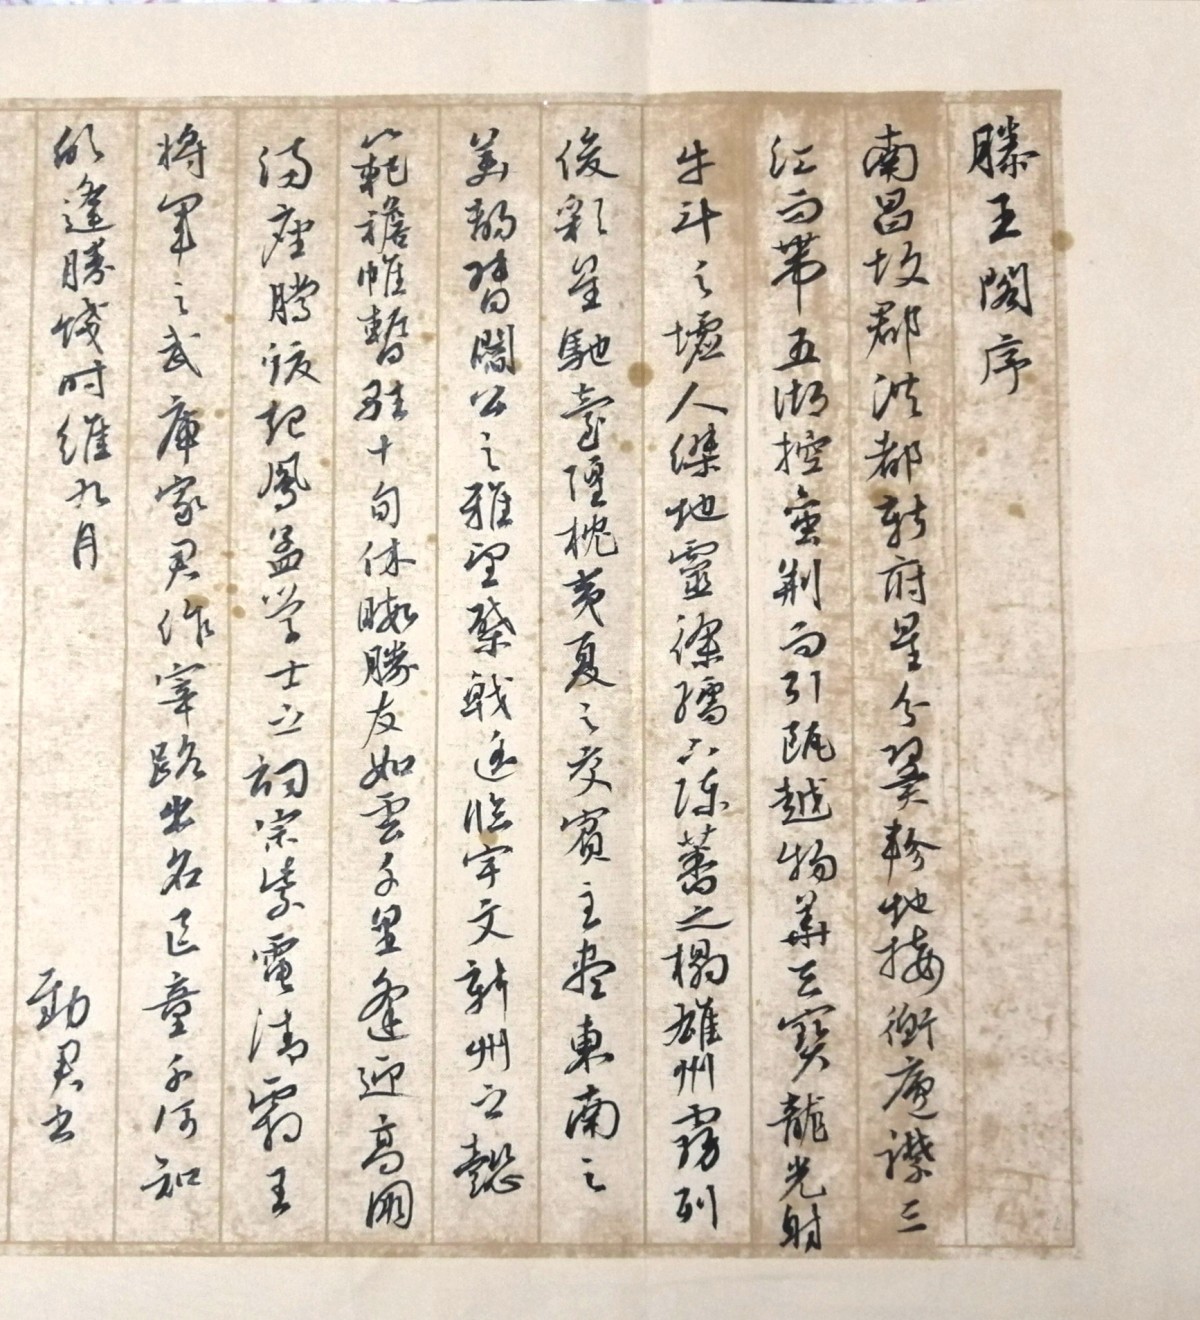 滕王閣序
南昌故郡洪都新府星分翼軫地接衡廬襟三
江而帶五湖控蠻荆而引甌越物華天寶龍光射
牛斗之墟人傑地靈徐孺下陳蕃之榻雄州霧列
俊彩星馳臺隍枕夷夏之交賓主盡東南之
美都督閻公之雅望棨戟遥臨宇文新州之懿
範襜帷暫駐十旬休暇勝友如雲千里逢迎高朋
滿座騰蛟起鳳孟学士之詞宗紫電清霜王
將軍之武庫家君作宰路出名區童子何知
躬逢勝餞时維九月
勤君书